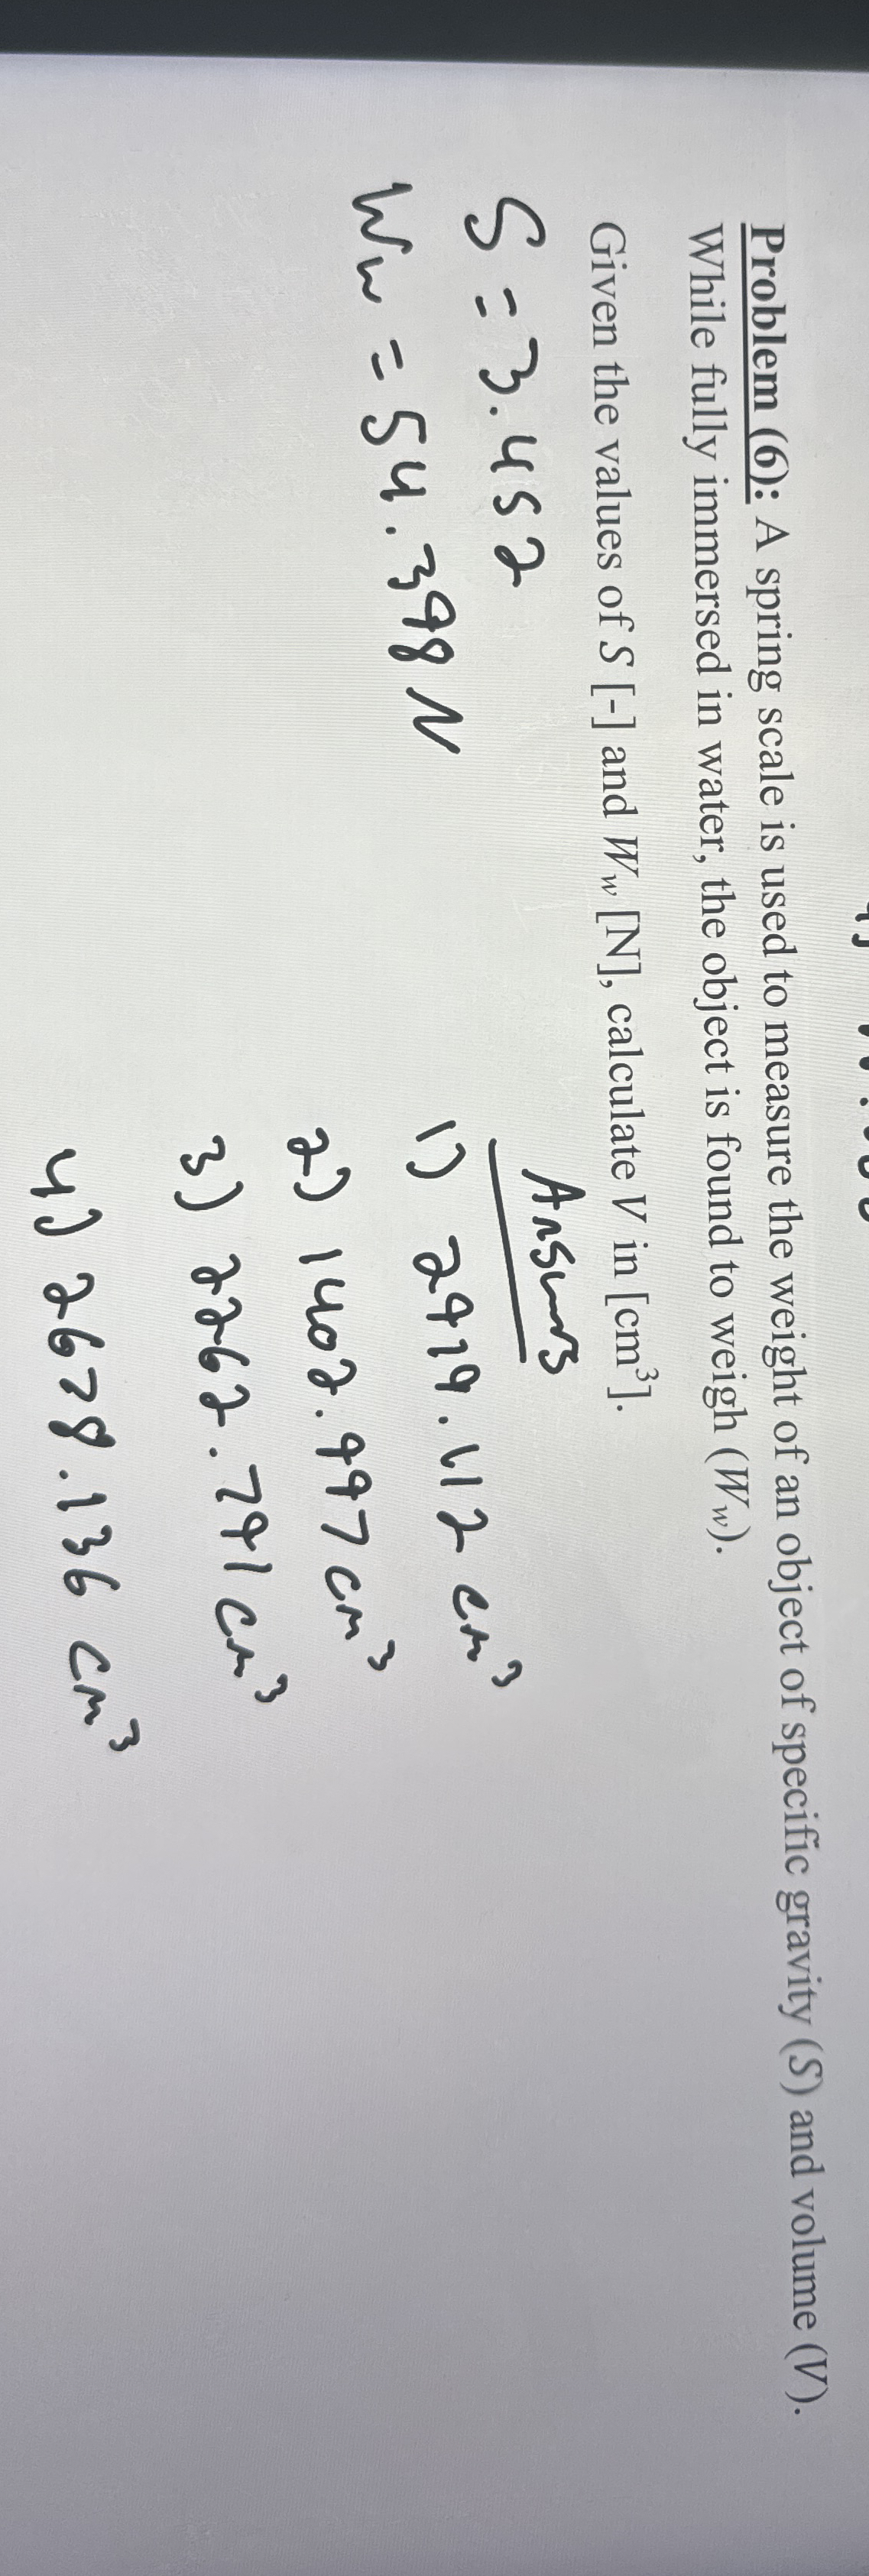 Problem (6): A spring scale is used to measure the weight of an object of specific gravity (S) and volume (V).
While fully immersed in water, the object is found to weigh (Ww).
Given the values of S [-] and Ww [N], calculate V in [cm³].
S = 3.452
Ww = 54.398 N
Answers
1) 2919.412 cm³
2) 1402.997 cm³
3) 2262.791 cm³
4) 2678.136 cm³